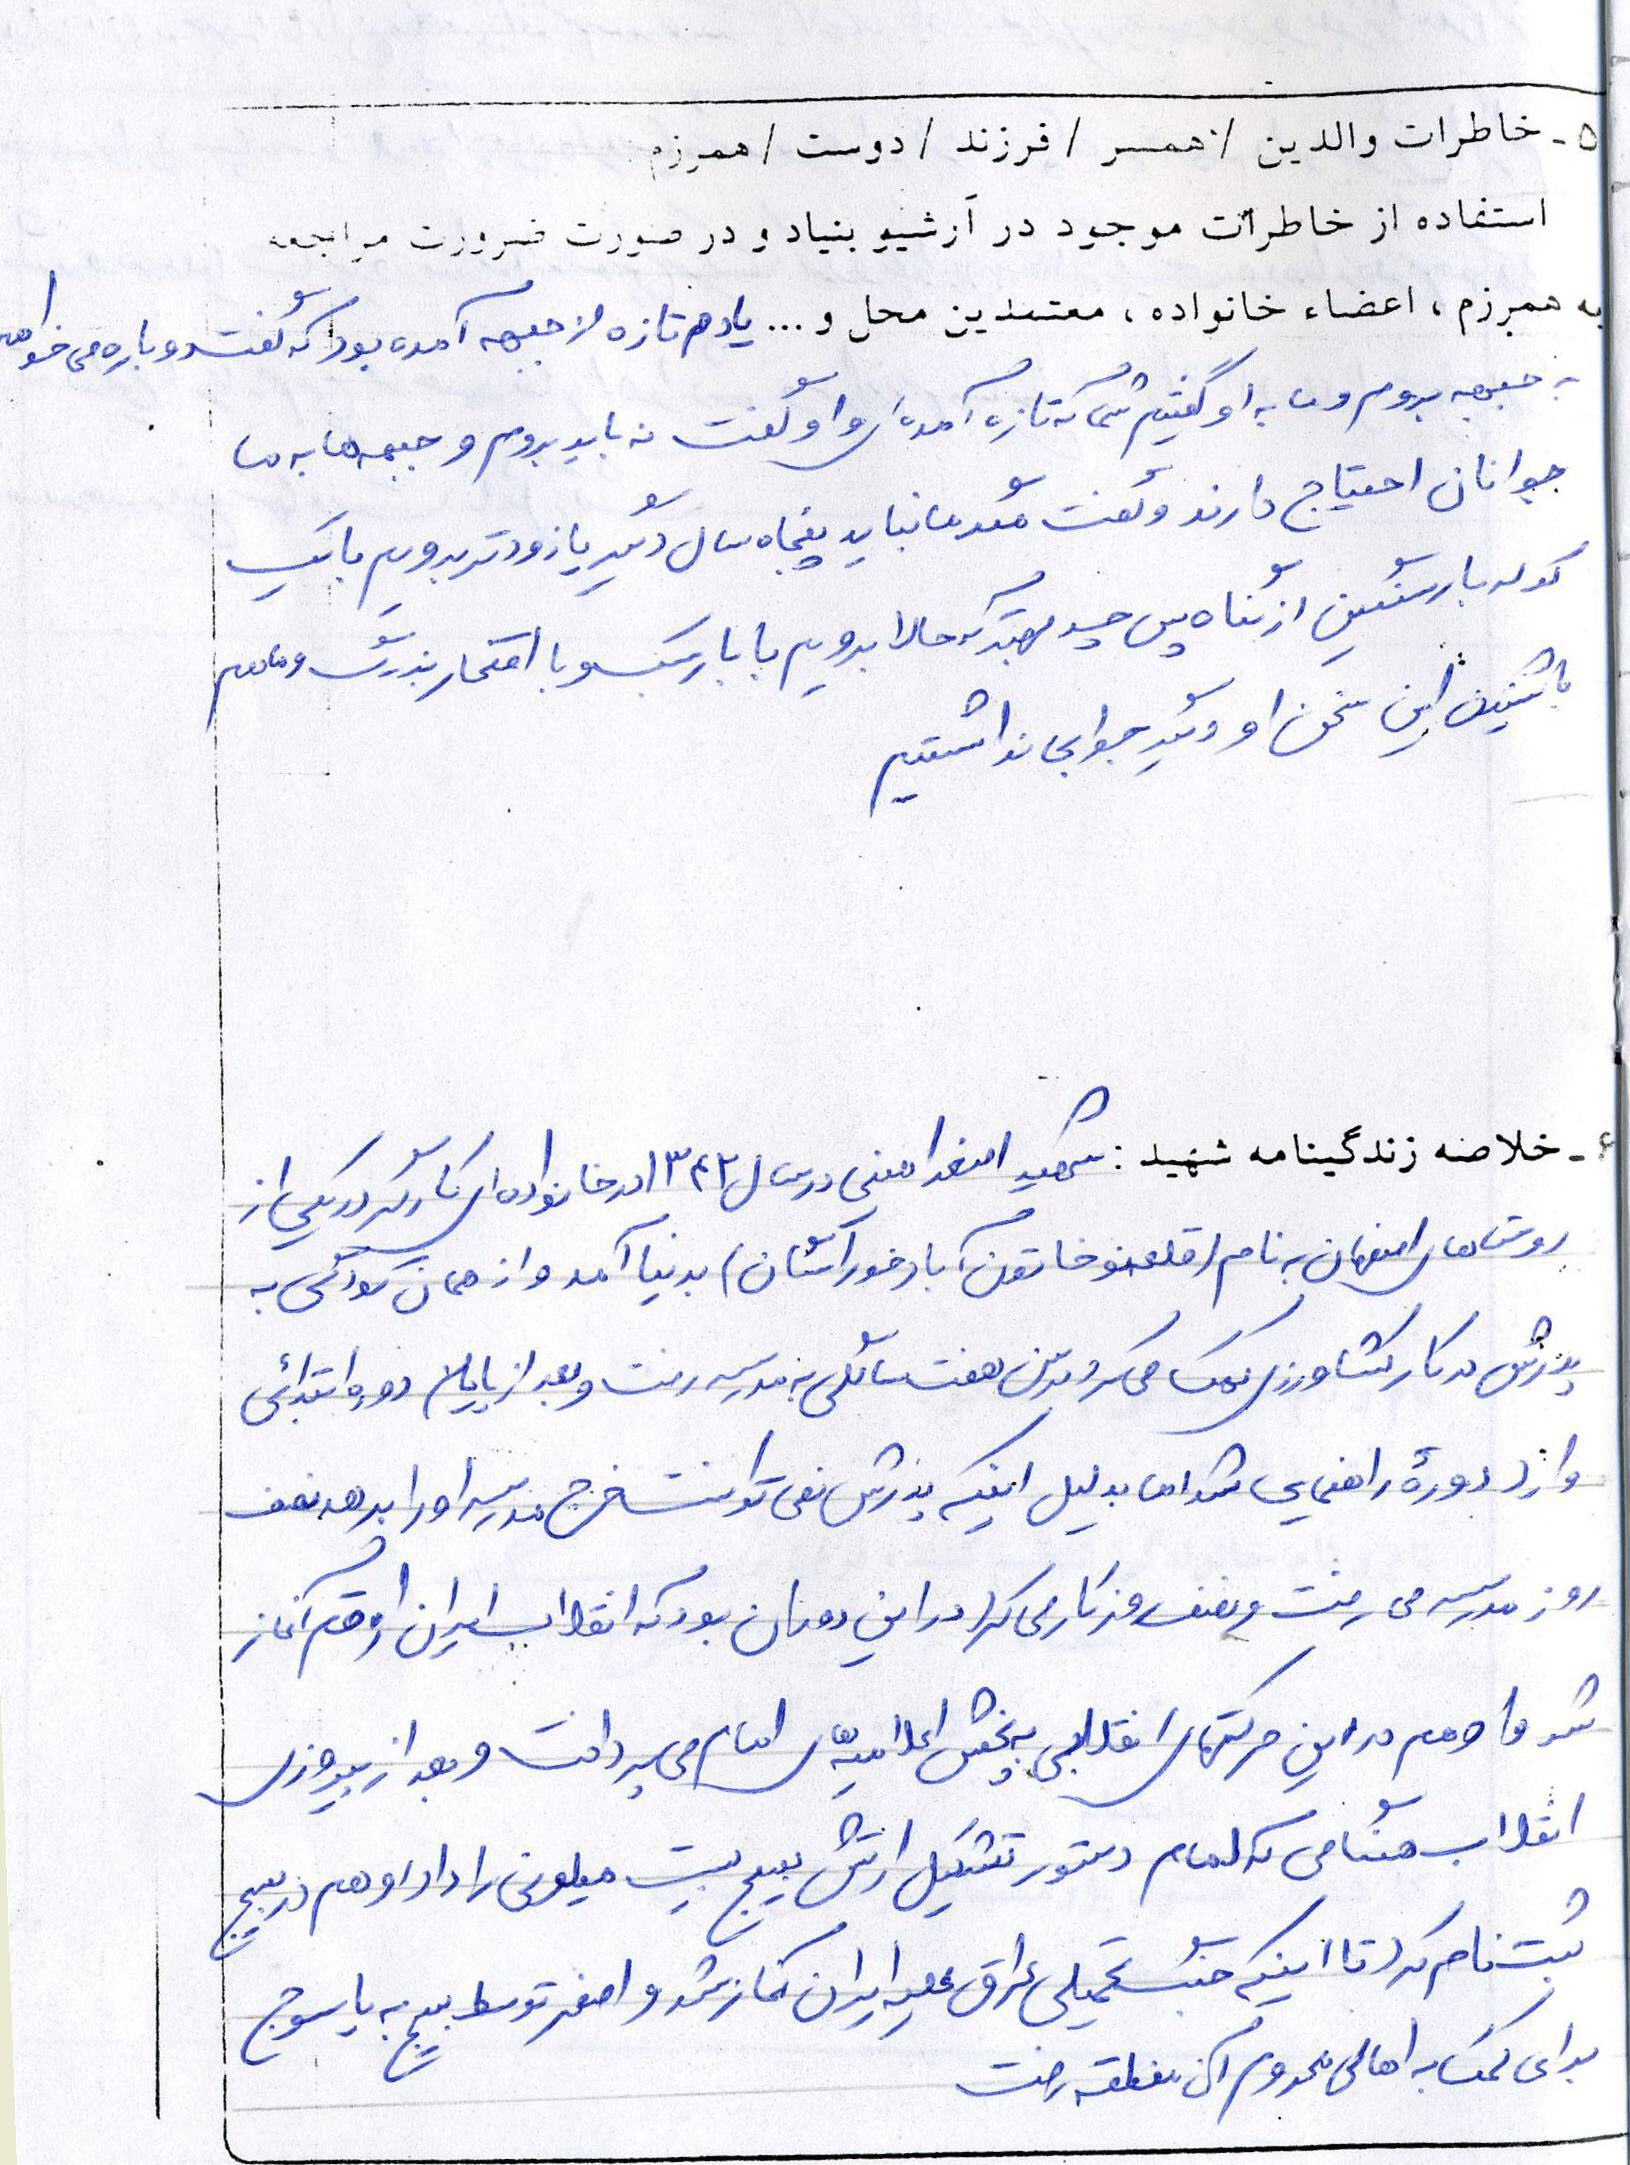 ۵- خاطرات والدین / همسر / فرزند / دوست / همرزم
استفاده از خاطرات موجود در آرشیو بنیاد و در صورت ضرورت مراجعه
به همرزم ، اعضاء خانواده ، معتمدین محل و ... یادم تازه از جبهه آمده بود که گفت دوباره می خواهم
به جبهه بروم و ما به او گفتیم شما که تازه آمده ای و او گفت نه باید بروم و جبهه ها به ما
جوانان احتیاج دارند و گفت مگر ما نباید پنجاه سال دیگر یا زودتر برویم با یک
کوله بار سنگین از گناه پس چه بهتر که حالا برویم با بار سبک و با افتخار بزرگ و ما هم
با شنیدن این سخن او دیگر جوابی نداشتیم
۶- خلاصه زندگینامه شهید : شهید اصغر امینی در سال ۱۳۴۲ در خانواده ای کارگر در یکی از
روستاهای اصفهان به نام (قلعه نو خاتون آباد خوراسگان) بدنیا آمد و از همان کودکی به
پدرش در کار کشاورزی کمک می کرد در سن هفت سالگی به مدرسه رفت و بعد از پایان دوره ابتدائی
وارد دورۀ راهنمایی شد اما بدلیل اینکه پدرش نمی توانست خرج مدرسه او را بدهد نصف
روز مدرسه می رفت و نصف روز کار می کرد در این دوران بود که انقلاب ایران آغاز
شد و او هم در این حرکتهای انقلابی به پخش اعلامیه های امام می پرداخت و بعد از پیروزی
انقلاب هنگامی که امام دستور تشکیل ارتش بسیج بیست میلیونی را داد او هم در بسیج
ثبت نام کرد تا اینکه جنگ تحمیلی عراق علیه ایران آغاز شد و اصغر توسط بسیج به یاسوج
برای کمک به اهالی محروم آن منطقه رفت